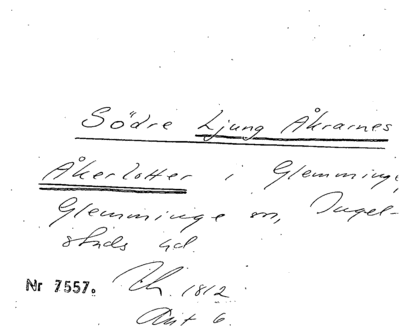 Södre Ljung Åkrarnes
Åkerlotter i Glemminge,
Glemminge sn, Ingel-
stads hd.
Nr 7557. 1812
Akt 6